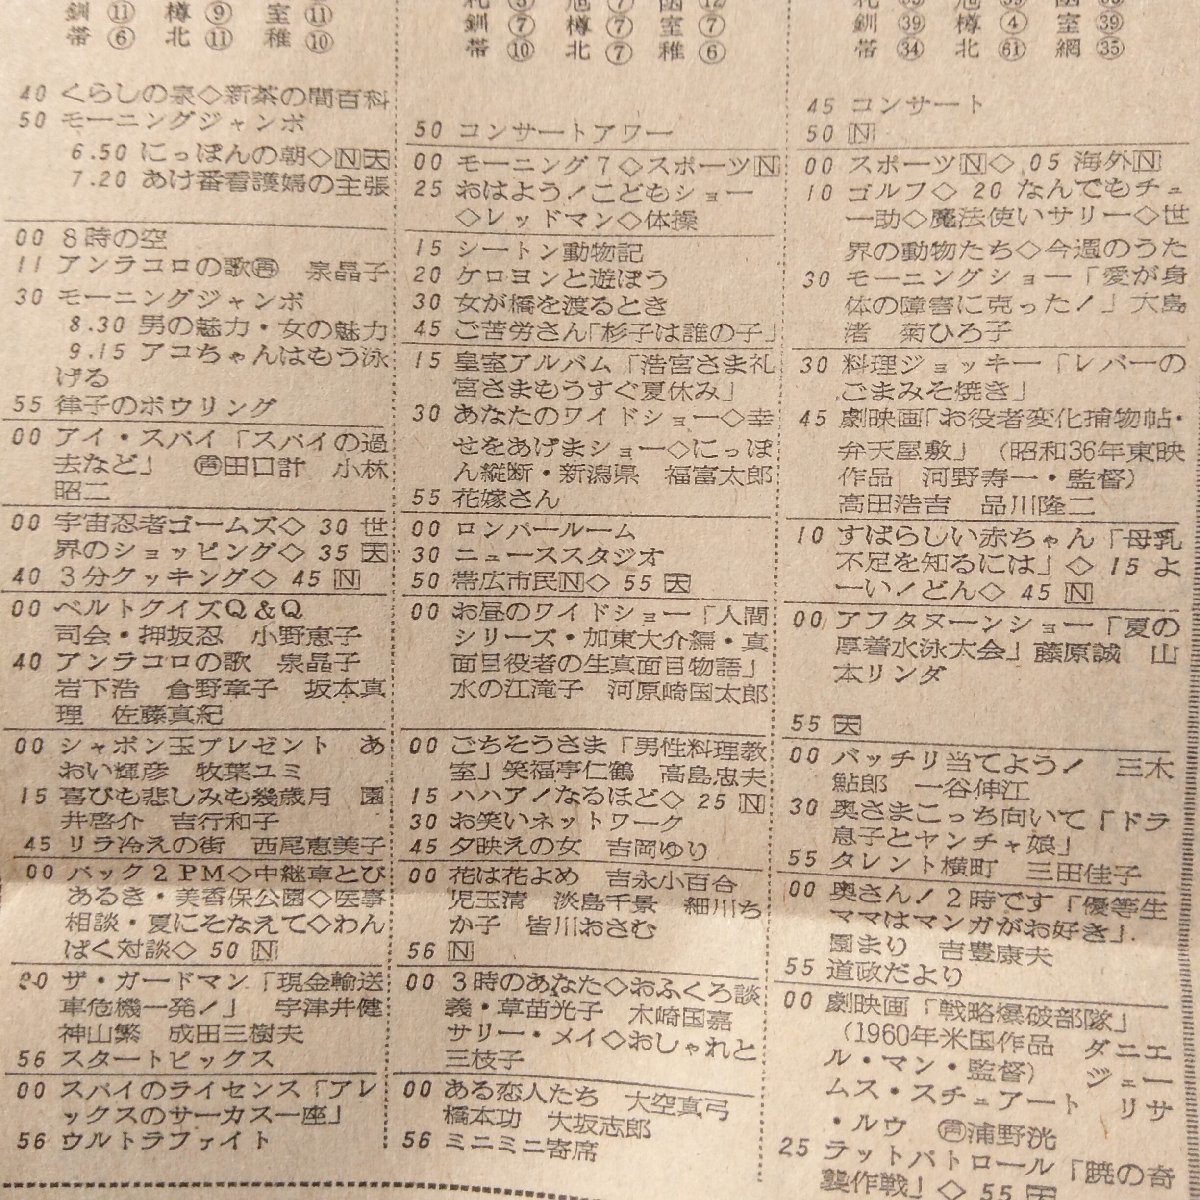 釧⑪ 樽⑨ 室⑪
帯⑥ 北⑪ 稚⑩
40 くらしの泉◇新茶の間百科
50 モーニングジャンボ
6.50 にっぽんの朝◇N天
7.20 あけ番看護婦の主張
00 8時の空
11 アンラコロの歌再 泉晶子
30 モーニングジャンボ
8.30 男の魅力・女の魅力
9.15 アコちゃんはもう泳
げる
55 律子のボウリング
00 アイ・スパイ「スパイの過
去など」 声田口計 小林
昭二
00 宇宙忍者ゴームズ◇ 30 世
界のショッピング◇ 35 天
40 3分クッキング◇ 45 N
00 ベルトクイズQ&Q
司会・押坂忍 小野恵子
40 アンラコロの歌 泉晶子
岩下浩 倉野章子 坂本真
理 佐藤真紀
00 シャボン玉プレゼント あ
おい輝彦 牧葉ユミ
15 喜びも悲しみも幾歳月 園
井啓介 吉行和子
45 リラ冷えの街 西尾恵美子
00 パック2PM◇中継車とび
あるき・美香保公園◇医事
相談・夏にそなえて◇わん
ぱく対談◇ 50 N
00 ザ・ガードマン「現金輸送
車危機一発!」 宇津井健
神山繁 成田三樹夫
56 スタートピックス
00 スパイのライセンス「アレ
ックスのサーカス一座」
56 ウルトラファイト
釧⑦ 樽⑦ 室⑦
帯⑩ 北⑦ 稚⑥
50 コンサートアワー
00 モーニング7◇スポーツN
25 おはよう!こどもショー
◇レッドマン◇体操
15 シートン動物記
20 ケロヨンと遊ぼう
30 女が橋を渡るとき
45 ご苦労さん「杉子は誰の子」
15 皇室アルバム「浩宮さま礼
宮さまもうすぐ夏休み」
30 あなたのワイドショー◇幸
せをあげまショー◇にっぽ
ん縦断・新潟県 福富太郎
55 花嫁さん
00 ロンパールーム
30 ニューススタジオ
50 帯広市民N◇ 55 天
00 お昼のワイドショー「人間
シリーズ・加東大介編・真
面目役者の生真面目物語」
水の江滝子 河原崎国太郎
00 ごちそうさま「男性料理教
室」笑福亭仁鶴 高島忠夫
15 ハハア!なるほど◇ 25 N
30 お笑いネットワーク
45 夕映えの女 吉岡ゆり
00 花は花よめ 吉永小百合
児玉清 淡島千景 細川ち
か子 皆川おさむ
56 N
00 3時のあなた◇おふくろ談
義・草苗光子 木崎国嘉
サリー・メイ◇おしゃれと
三枝子
00 ある恋人たち 大空真弓
橋本功 大坂志郎
56 ミニミニ寄席
釧㊴ 樽④ 室㊴
帯㉞ 北61 網㉟
45 コンサート
50 N
00 スポーツN◇ 05 海外N
10 ゴルフ◇ 20 なんでもチュ
一助◇魔法使いサリー◇世
界の動物たち◇今週のうた
30 モーニングショー「愛が身
体の障害に克った!」大島
渚 菊ひろ子
30 料理ジョッキー「レバーの
ごまみそ焼き」
45 劇映画「お役者変化捕物帖・
弁天屋敷」(昭和36年東映
作品 河野寿一・監督)
高田浩吉 品川隆二
10 すばらしい赤ちゃん「母乳
不足を知るには」◇ 15 よ
ーい!どん◇ 45 N
00 アフタヌーンショー「夏の
厚着水泳大会」藤原誠 山
本リンダ
55 天
00 バッチリ当てよう! 三木
鮎郎 一谷伸江
30 奥さまこっち向いて「ドラ
息子とヤンチャ娘」
55 タレント横町 三田佳子
00 奥さん!2時です「優等生
ママはマンガがお好き」
園まり 吉豊康夫
55 道政だより
00 劇映画「戦略爆破部隊」
(1960年米国作品 ダニエ
ル・マン・監督) ジェー
ムス・スチュアート リサ
・ルウ 声浦野洸
25 ラットパトロール「暁の奇
襲作戦」◇ 55 天